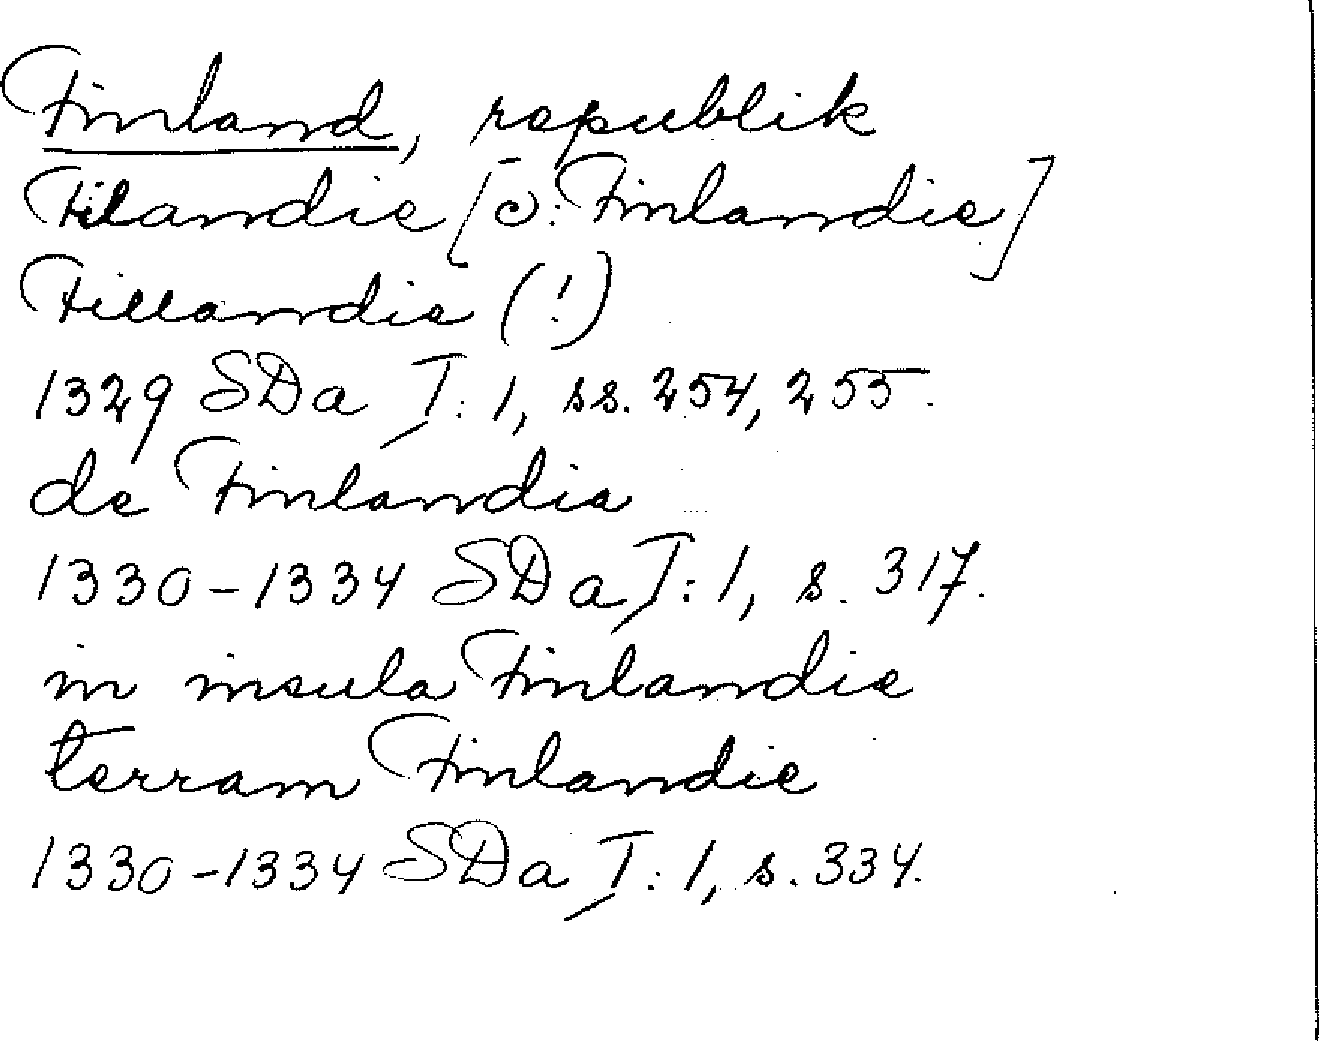 Finland, republik
Filandie [ɔ: Finlandie]
Fillandie (!)
1329 SDa I: 1, ss. 254, 255.
de Finlandia
1330-1334 SDa I: 1, s. 317.
in insula Finlandie
terram Finlandie
1330-1334 SDa I: 1, s. 334.